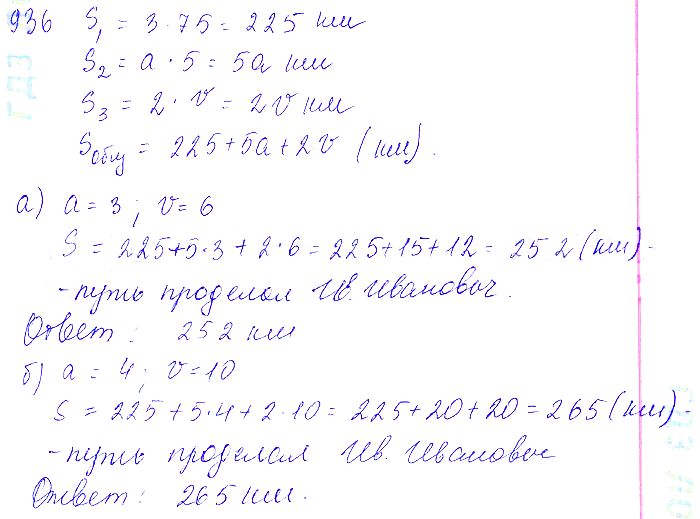 936 S₁ = 3·75 = 225 км
S₂ = a · 5 = 5a км
S₃ = 2 · v = 2v км
Sобщ = 225+5a+2v (км).
а) a = 3; v = 6
S = 225+5·3 + 2·6 = 225+15+12 = 252 (км) -
- путь проделал Ив. Иванович.
Ответ: 252 км
б) a = 4; v = 10
S = 225 + 5·4 + 2·10 = 225 + 20 + 20 = 265 (км) -
- путь проделал Ив. Иванович
Ответ: 265 км.
ГДЗ